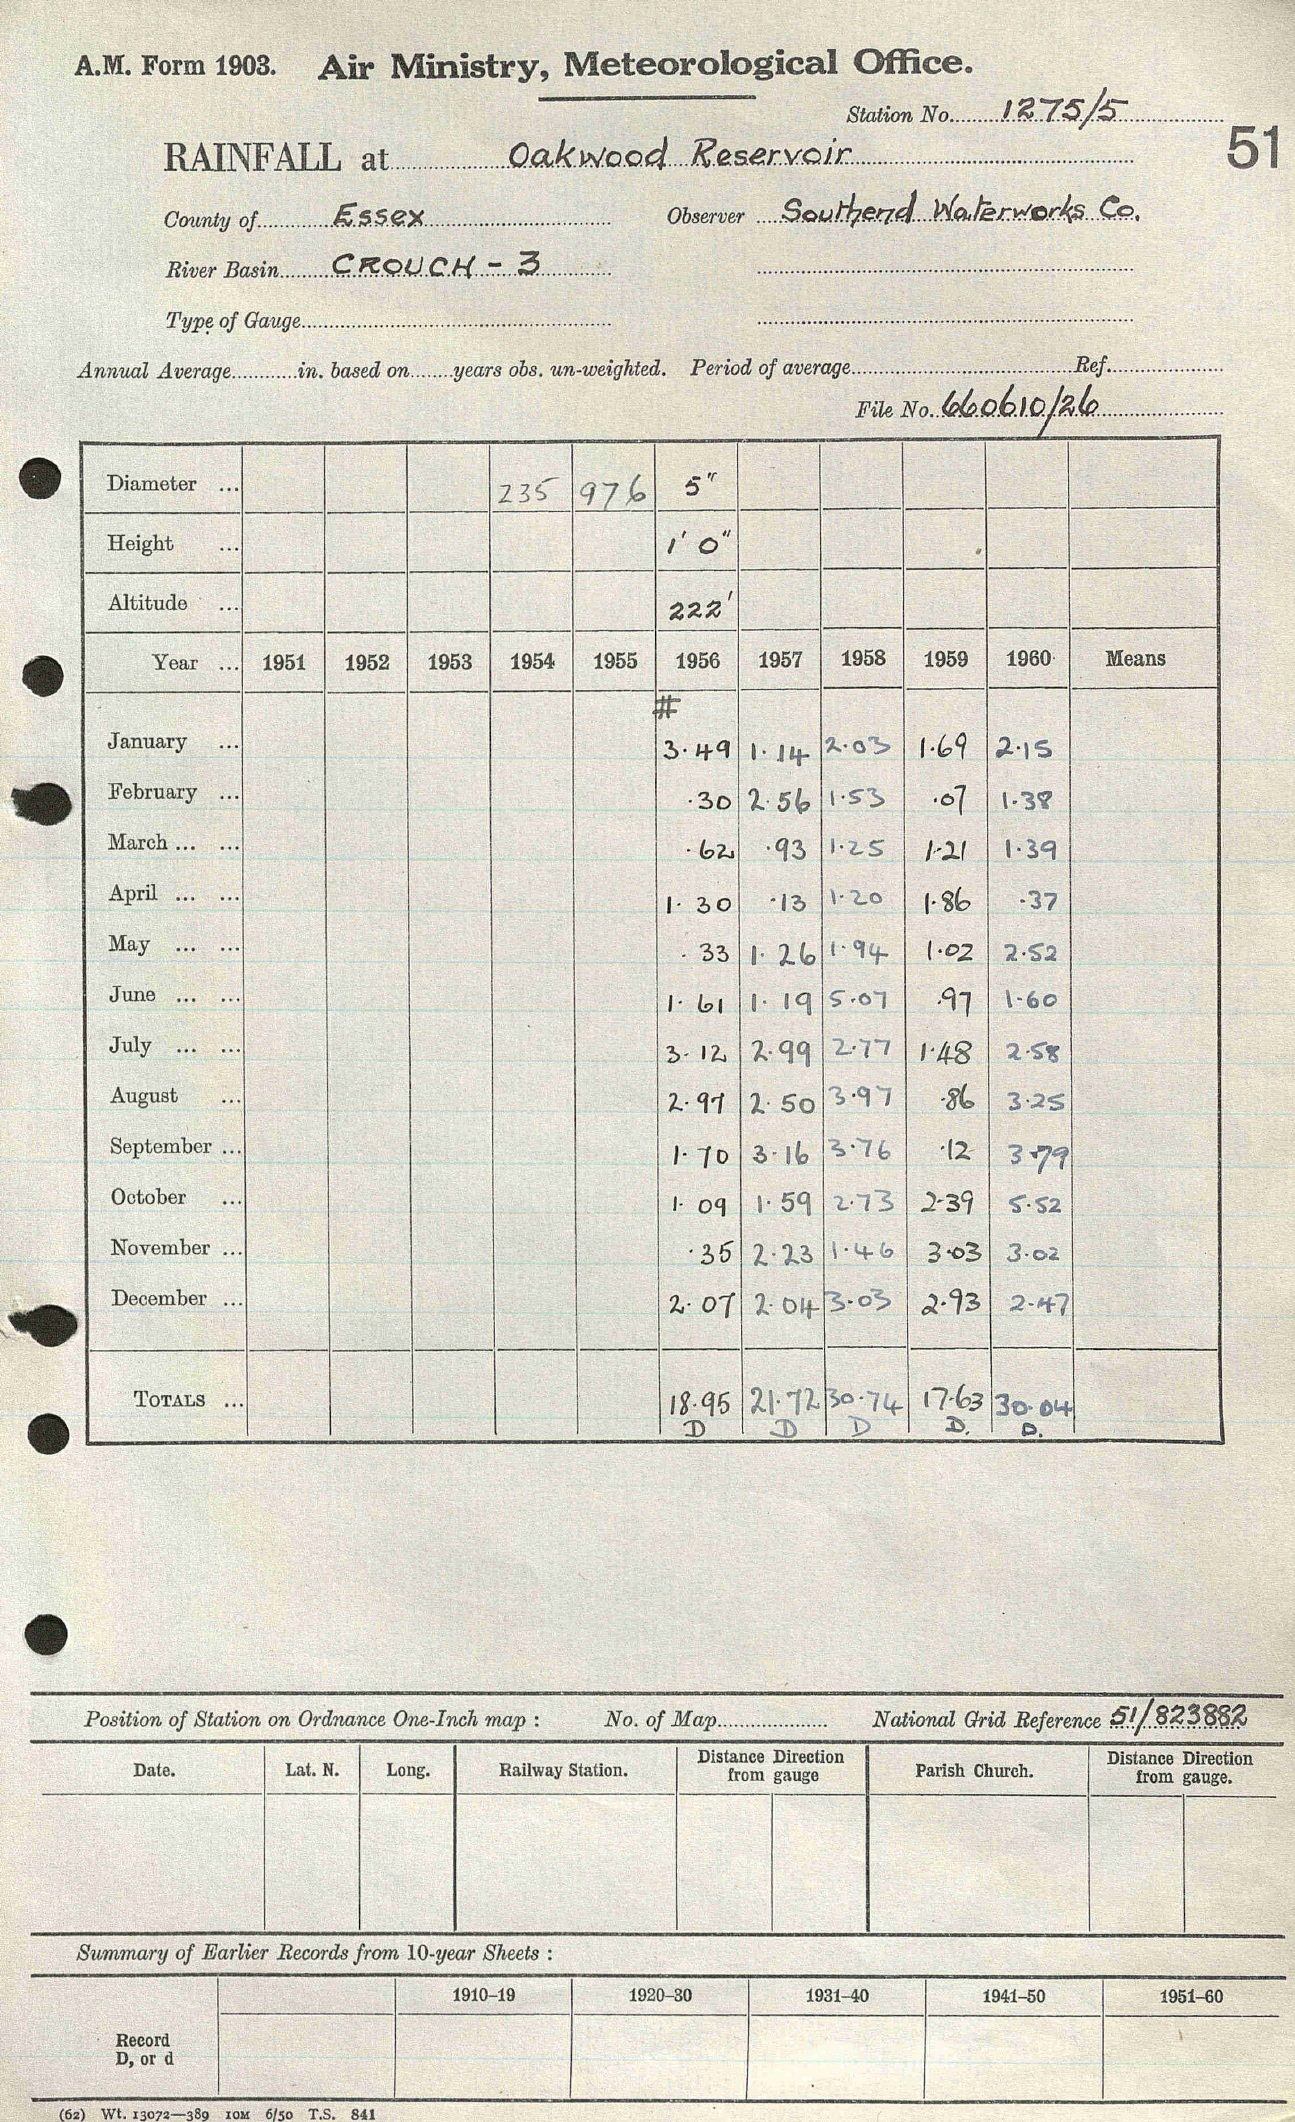 A.M. Form 1903. Air Ministry, Meteorological Office.
Station No. 1275/5
51
RAINFALL at Oakwood Reservoir
County of Essex Observer Southend Waterworks Co.
River Basin CROUCH - 3
Type of Gauge
Annual Average in. based on years obs. un-weighted. Period of average Ref.
File No. 660610/26
Diameter ... 235 976 5"
Height ... 1' 0"
Altitude ... 222'
Year ... 1951 1952 1953 1954 1955 1956 1957 1958 1959 1960 Means
#
January ... 3.49 1.14 2.03 1.69 2.15
February ... .30 2.56 1.53 .07 1.38
March ... ... .62 .93 1.25 1.21 1.39
April ... ... 1.30 .13 1.20 1.86 .37
May ... ... .33 1.26 1.94 1.02 2.52
June ... ... 1.61 1.19 5.07 .97 1.60
July ... ... 3.12 2.99 2.77 1.48 2.58
August ... 2.97 2.50 3.97 .86 3.25
September ... 1.70 3.16 3.76 .12 3.79
October ... 1.09 1.59 2.73 2.39 5.52
November ... .35 2.23 1.46 3.03 3.02
December ... 2.07 2.04 3.03 2.93 2.47
TOTALS ... 18.95 21.72 30.74 17.63 30.04
D D D D. D.
Position of Station on Ordnance One-Inch map : No. of Map National Grid Reference 51/823882
Date. Lat. N. Long. Railway Station. Distance Direction from gauge Parish Church. Distance Direction from gauge.
Summary of Earlier Records from 10-year Sheets :
1910–19 1920–30 1931–40 1941–50 1951–60
Record
D, or d
(62) Wt. 13072—389 10M 6/50 T.S. 841